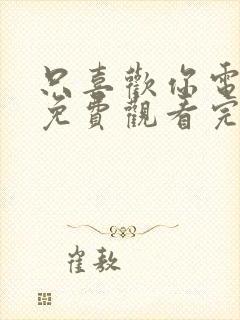 只喜歡你電
免費觀看完
崔敖